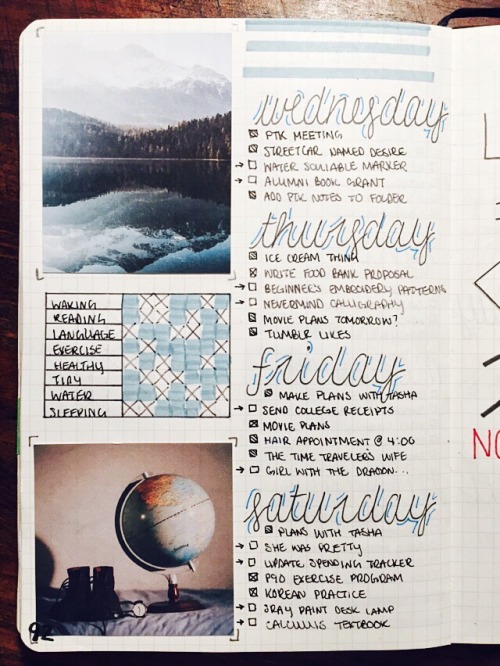 WAKING
READING
LANGUAGE
EXERCISE
HEALTHY
TIDY
WATER
SLEEPING
92
wednesday
PTK MEETING
STREETCAR NAMED DESIRE
WATER SOULIABLE MARKER
ALUMNI BOOK GRANT
ADD PTK NOTES TO FOLDER
thursday
ICE CREAM THING
WRITE FOOD BANK PROPOSAL
BEGINNER'S EMBROIDERY PATTERNS
NEVERMIND CALLIGRAPHY
MOVIE PLANS TOMORROW?
TUMBLR LIKES
friday
MAKE PLANS WITH TASHA
SEND COLLEGE RECEIPTS
MOVIE PLANS
HAIR APPOINTMENT @ 4:00
THE TIME TRAVELER'S WIFE
GIRL WITH THE DRAGON...
saturday
PLANS WITH TASHA
SHE WAS PRETTY
UPDATE SPENDING TRACKER
P90 EXERCISE PROGRAM
KOREAN PRACTICE
SRAY PAINT DESK LAMP
CALCULUS TEXTBOOK
NO